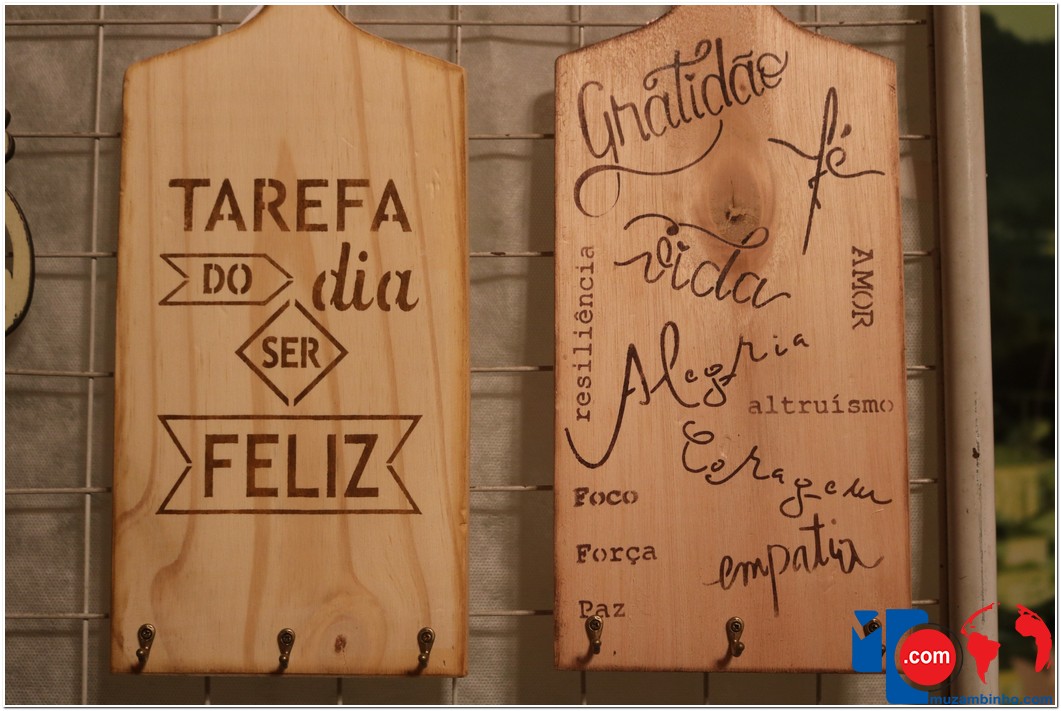 TAREFA
DO dia
SER
FELIZ
Gratidão
fé
vida
resiliência
AMOR
Alegria
altruísmo
Coragem
Foco
Força
empatia
Paz
.com
muzambinho.com